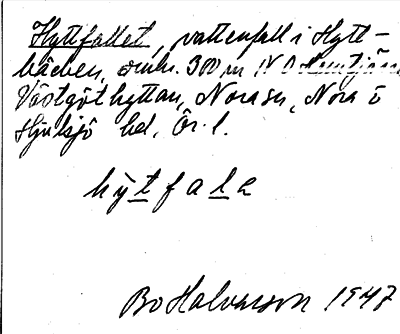 Hyttfallet, vattenfall i Hytt-
bäcken, omkr. 300 m N
Västgöthyttan, Nora sn, Nora o
Hjulsjö hd, Ör. l.
hy̆tfala
Bo Halvarson 1947